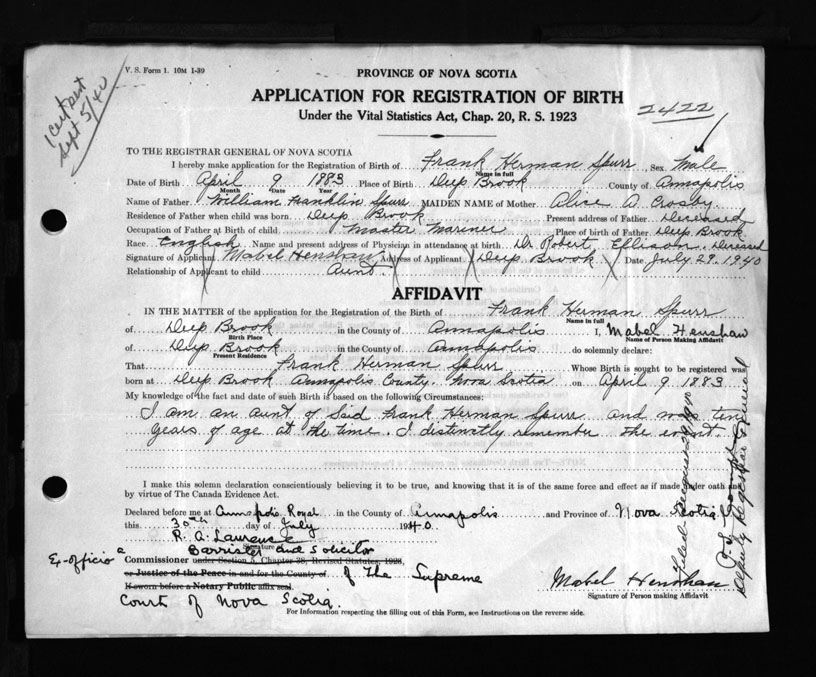 V. S. Form 1. 10M 1-39
1 Cert sent
Sept 5/40
PROVINCE OF NOVA SCOTIA
APPLICATION FOR REGISTRATION OF BIRTH
Under the Vital Statistics Act, Chap. 20, R. S. 1923
2422
TO THE REGISTRAR GENERAL OF NOVA SCOTIA
I hereby make application for the Registration of Birth of Frank Herman Spurr, Sex Male
Name in full
Date of Birth April 9 1883 Place of Birth Deep Brook County of Annapolis
Month Date Year
Name of Father William Franklin Spurr MAIDEN NAME of Mother Alice A. Crosby
Residence of Father when child was born Deep Brook Present address of Father Deceased
Occupation of Father at Birth of child Master Mariner Place of birth of Father Deep Brook
Race English Name and present address of Physician in attendance at birth Dr Robert Ellison, Deceased
Signature of Applicant Mabel Henshaw Address of Applicant Deep Brook Date July 29. 1940
Relationship of Applicant to child Aunt
AFFIDAVIT
IN THE MATTER of the application for the Registration of the Birth of Frank Herman Spurr
Name in full
of Deep Brook in the County of Annapolis I, Mabel Henshaw
Birth Place Name of Person Making Affidavit
of Deep Brook in the County of Annapolis do solemnly declare:
Present Residence
That Frank Herman Spurr Whose Birth is sought to be registered was
born at Deep Brook Annapolis County. Nova Scotia on April 9 1883
My knowledge of the fact and date of such Birth is based on the following Circumstances:
I am an aunt of said Frank Herman Spurr and was ten
years of age at the time. I distinctly remember the event.
I make this solemn declaration conscientiously believing it to be true, and knowing that it is of the same force and effect as if made under oath and
by virtue of The Canada Evidence Act.
Declared before me at Annapolis Royal in the County of Annapolis and Province of Nova Scotia
this 30th day of July 1940.
R. A. Laurence
Signature
Barrister and Solicitor
Ex-officio a Commissioner under Section 5, Chapter 38, Revised Statutes, 1923,
or Justice of the Peace in and for the County of of The Supreme
If sworn before a Notary Public affix seal.
Court of Nova Scotia.
Mabel Henshaw
Signature of Person making Affidavit
For Information respecting the filling out of this Form, see Instructions on the reverse side.
Deputy Registrar General